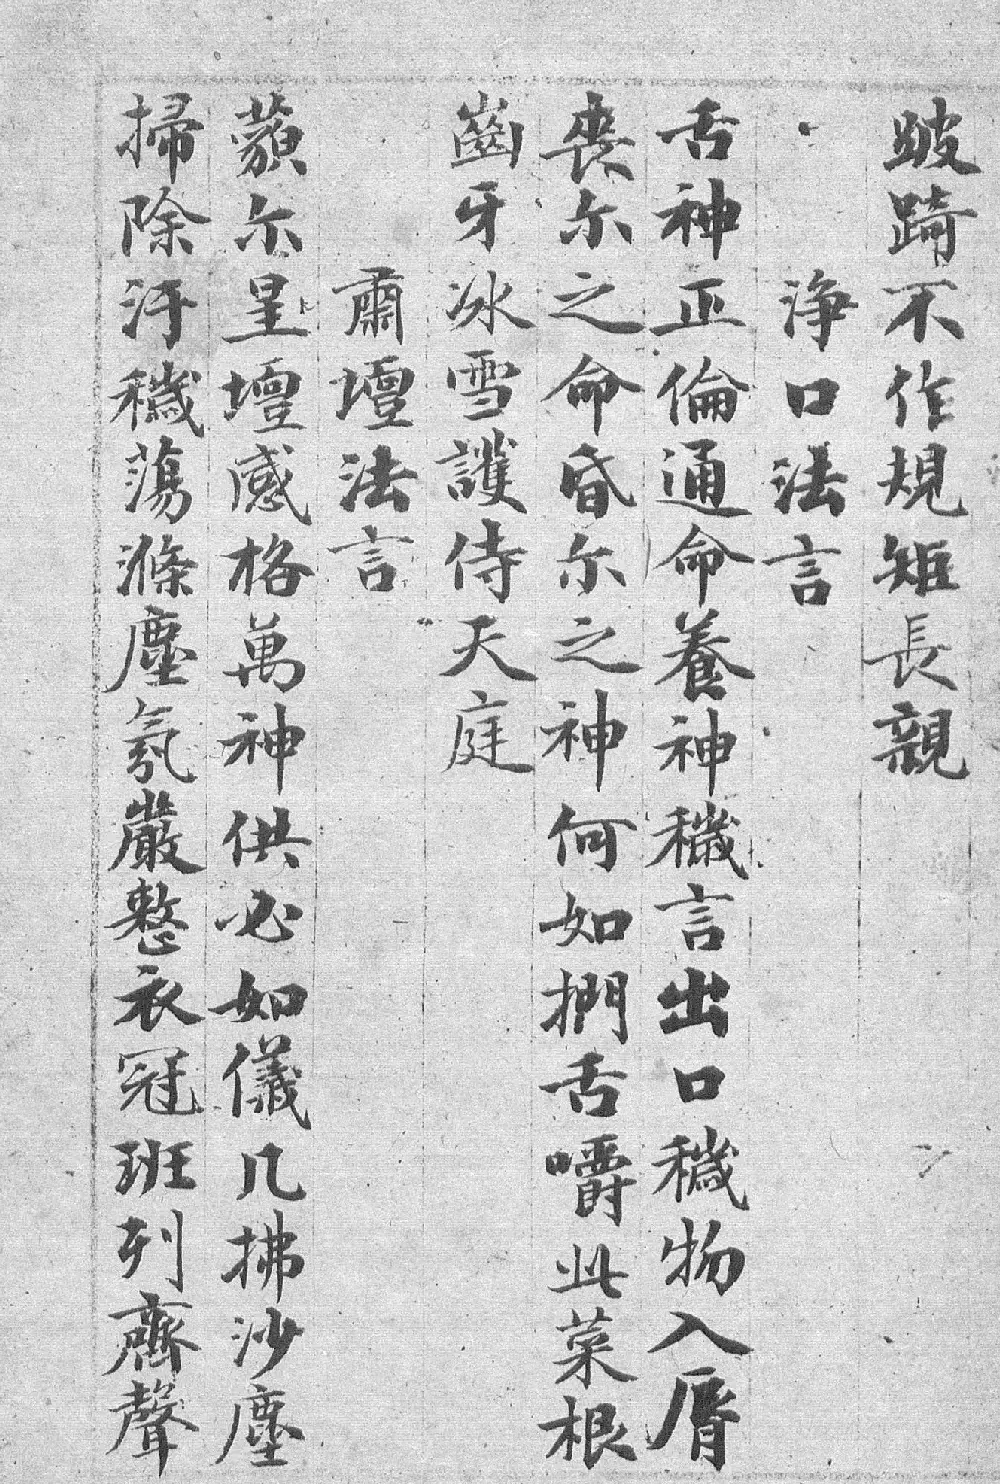 跛踦不作規矩長親
淨口法言
舌神正倫通命養神穢言出口穢物入脣
喪尓之命昏尓之神何如捫舌嚼此菜根
齒牙冰雪護侍天庭
肅壇法言
藐尓星壇感格萬神供必如儀几拂沙塵
掃除汙穢蕩滌塵氛嚴整衣冠班列齊聲